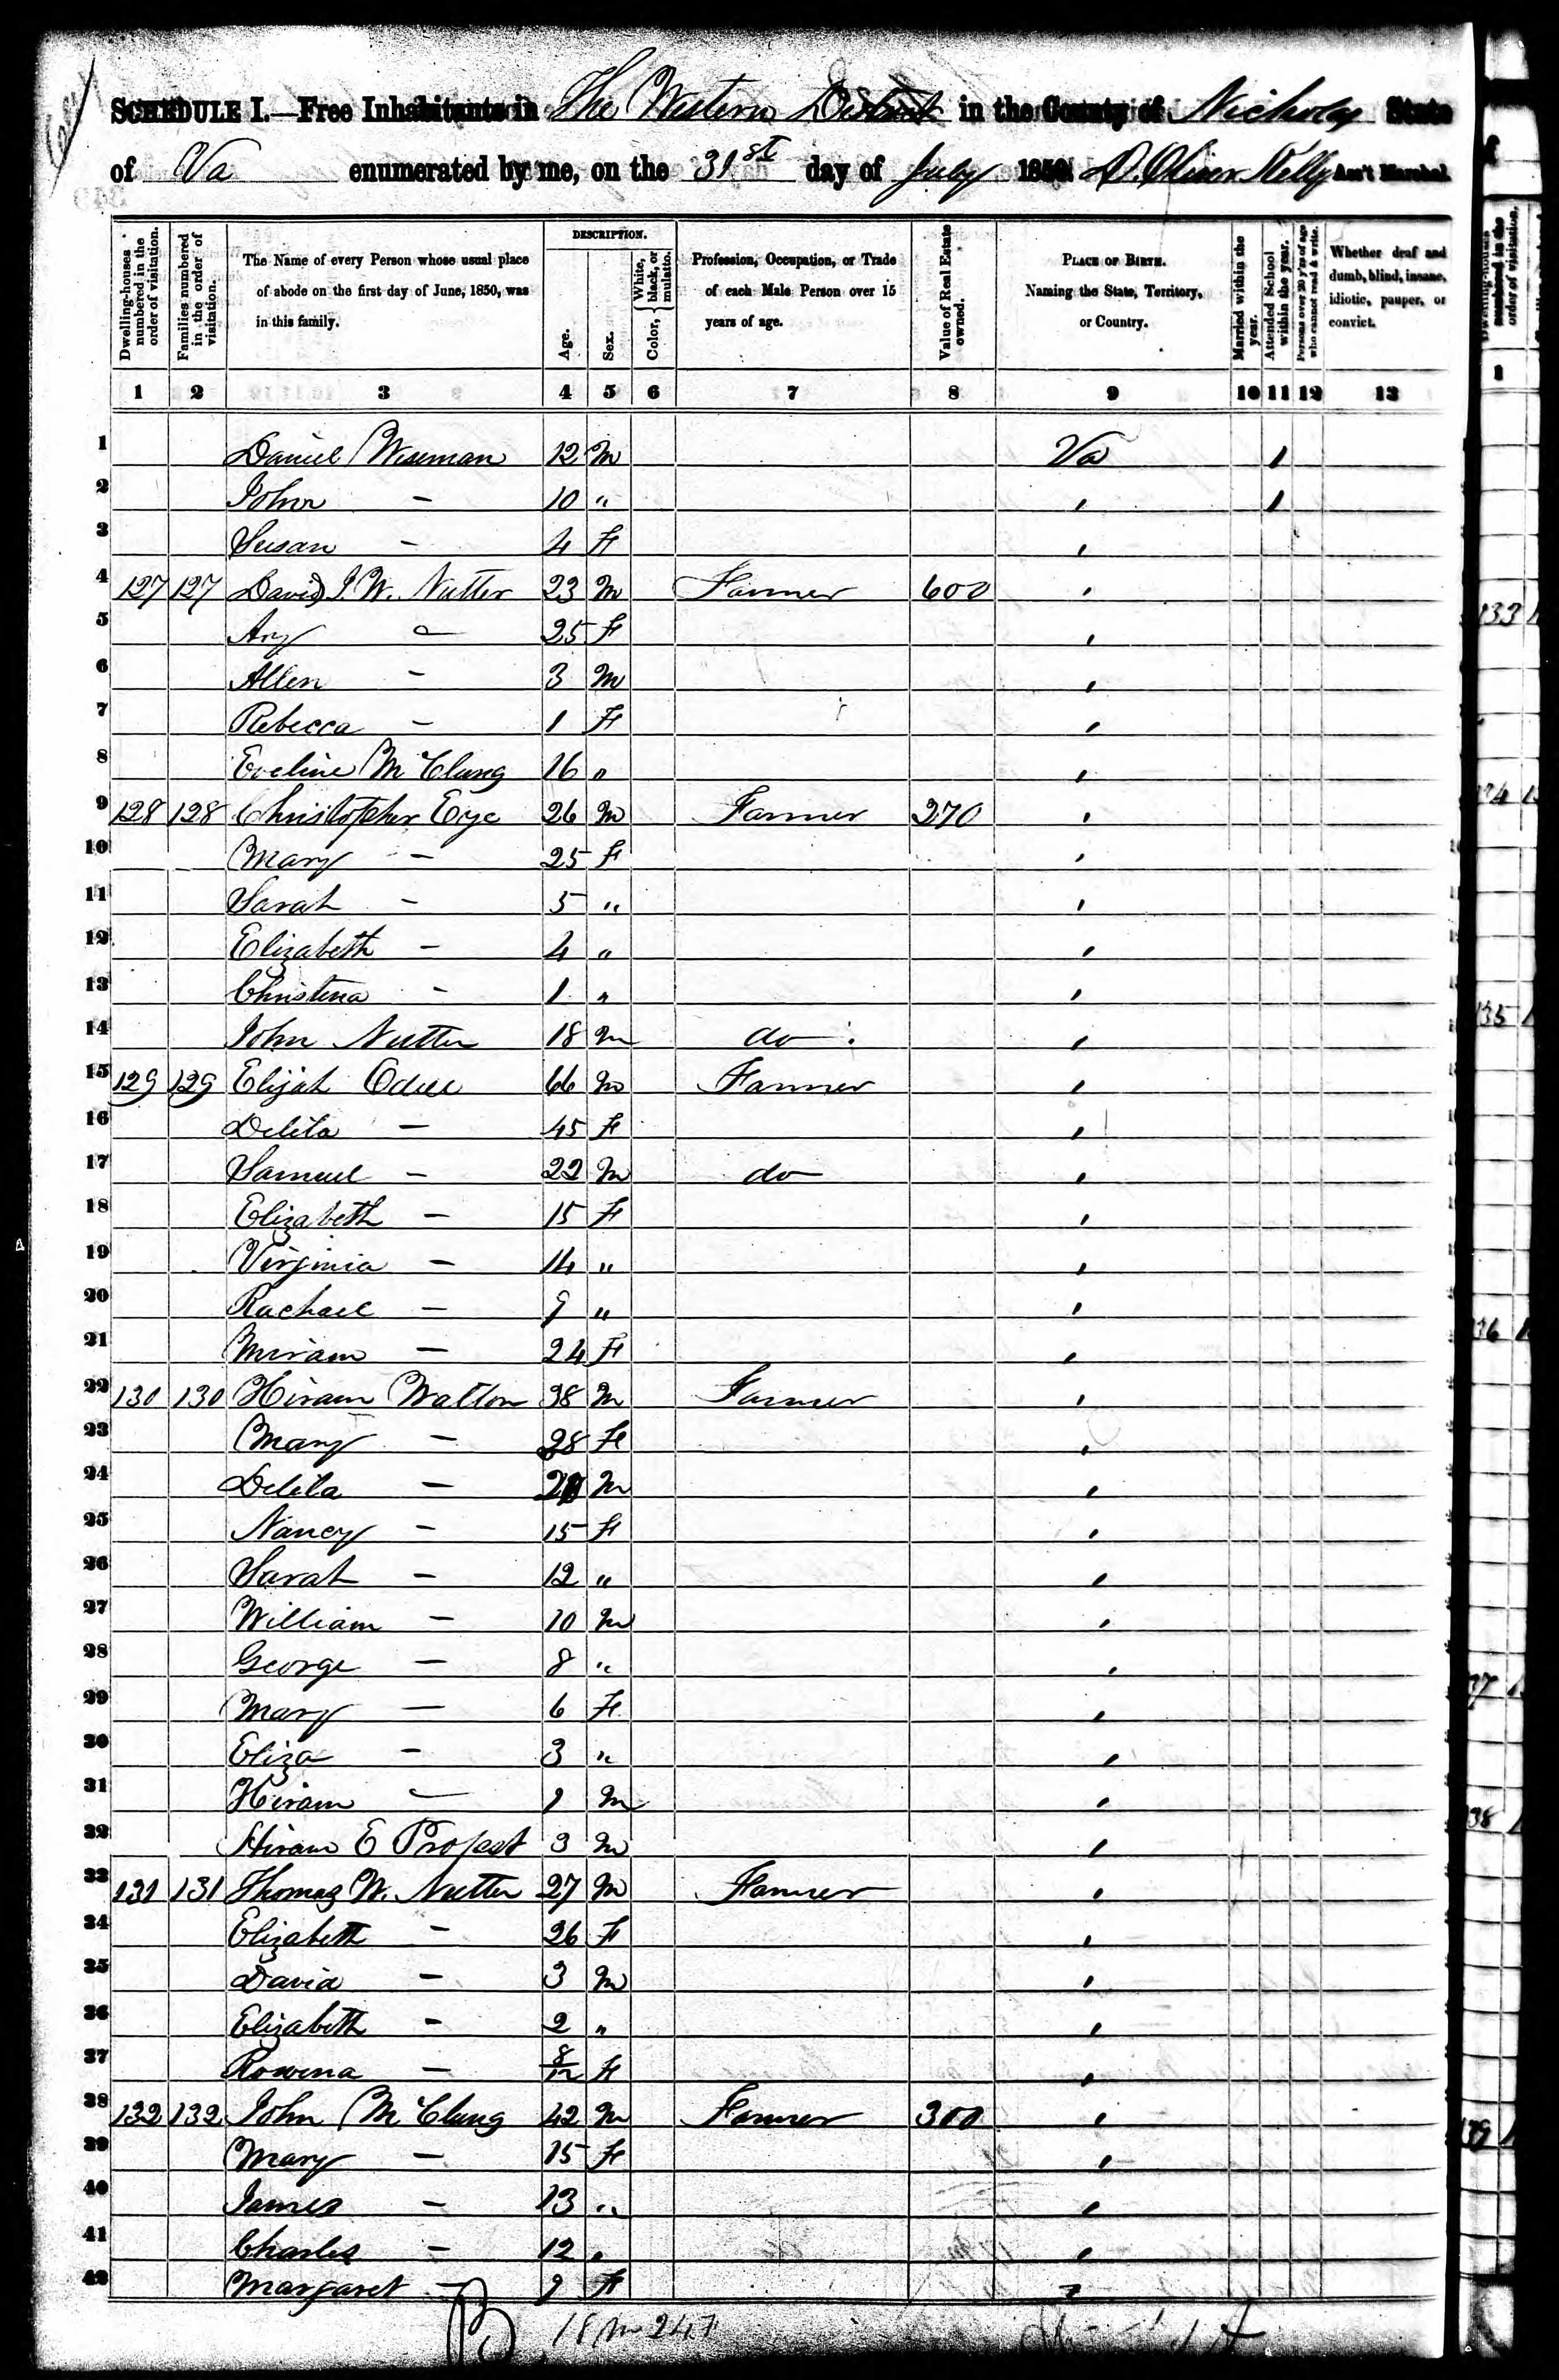 SCHEDULE I.—Free Inhabitants in The Western District in the County of Nicholas State
of Va enumerated by me, on the 31st day of July 1850. D. Oliver Kelly Ass't Marshal.
Dwelling-houses numbered in the order of visitation. Families numbered in the order of visitation. The Name of every Person whose usual place of abode on the first day of June, 1850, was in this family. DESCRIPTION. Age. Sex. Color, White, black, or mulatto. Profession, Occupation, or Trade of each Male Person over 15 years of age. Value of Real Estate owned. PLACE OF BIRTH. Naming the State, Territory, or Country. Married within the year. Attended School within the year. Persons over 20 y'rs of age who cannot read & write. Whether deaf and dumb, blind, insane, idiotic, pauper, or convict.
1 2 3 4 5 6 7 8 9 10 11 12 13
1 Daniel Wiseman 12 M Va 1
2 John — 10 " " 1
3 Susan — 4 F "
4 127 127 David J. W. Nutter 23 M Farmer 600 "
5 Ary — 25 F "
6 Allen — 3 M "
7 Rebecca — 1 F "
8 Eveline McClung 16 " "
9 128 128 Christopher Eye 26 M Farmer 270 "
10 Mary — 25 F "
11 Sarah — 5 " "
12 Elizabeth — 4 " "
13 Christena — 1 " "
14 John Nutter 18 M do "
15 129 129 Elijah Odell 66 M Farmer "
16 Delila — 45 F "
17 Samuel — 22 M do "
18 Elizabeth — 15 F "
19 Virginia — 14 " "
20 Rachael — 9 " "
21 Miriam — 24 F "
22 130 130 Hiram Walton 38 M Farmer "
23 Mary — 28 F "
24 Delila — M "
25 Nancy — 15 F "
26 Sarah — 12 " "
27 William — 10 M "
28 George — 8 " "
29 Mary — 6 F "
30 Eliza — 3 " "
31 Hiram — 1 M "
32 Hiram E Propest 3 M "
33 131 131 Thomas W. Nutter 27 M Farmer "
34 Elizabeth — 26 F "
35 David — 3 M "
36 Elizabeth — 2 " "
37 Rowena — 8/12 F "
38 132 132 John McClung 42 M Farmer 300 "
39 Mary — 15 F "
40 James — 13 " "
41 Charles — 12 " "
42 Margaret — 9 F "
18 M 24 F